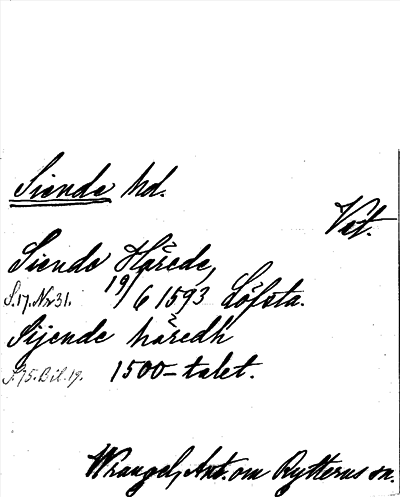 Siende hd.
Vst.
Siende Härede,
S.17. Nr 31. 19/6 1593 Löfsta.
Sijende häredh
S.75. Bil. 19. 1500-talet.
Wrangel, Ant. om Rytterns sn.